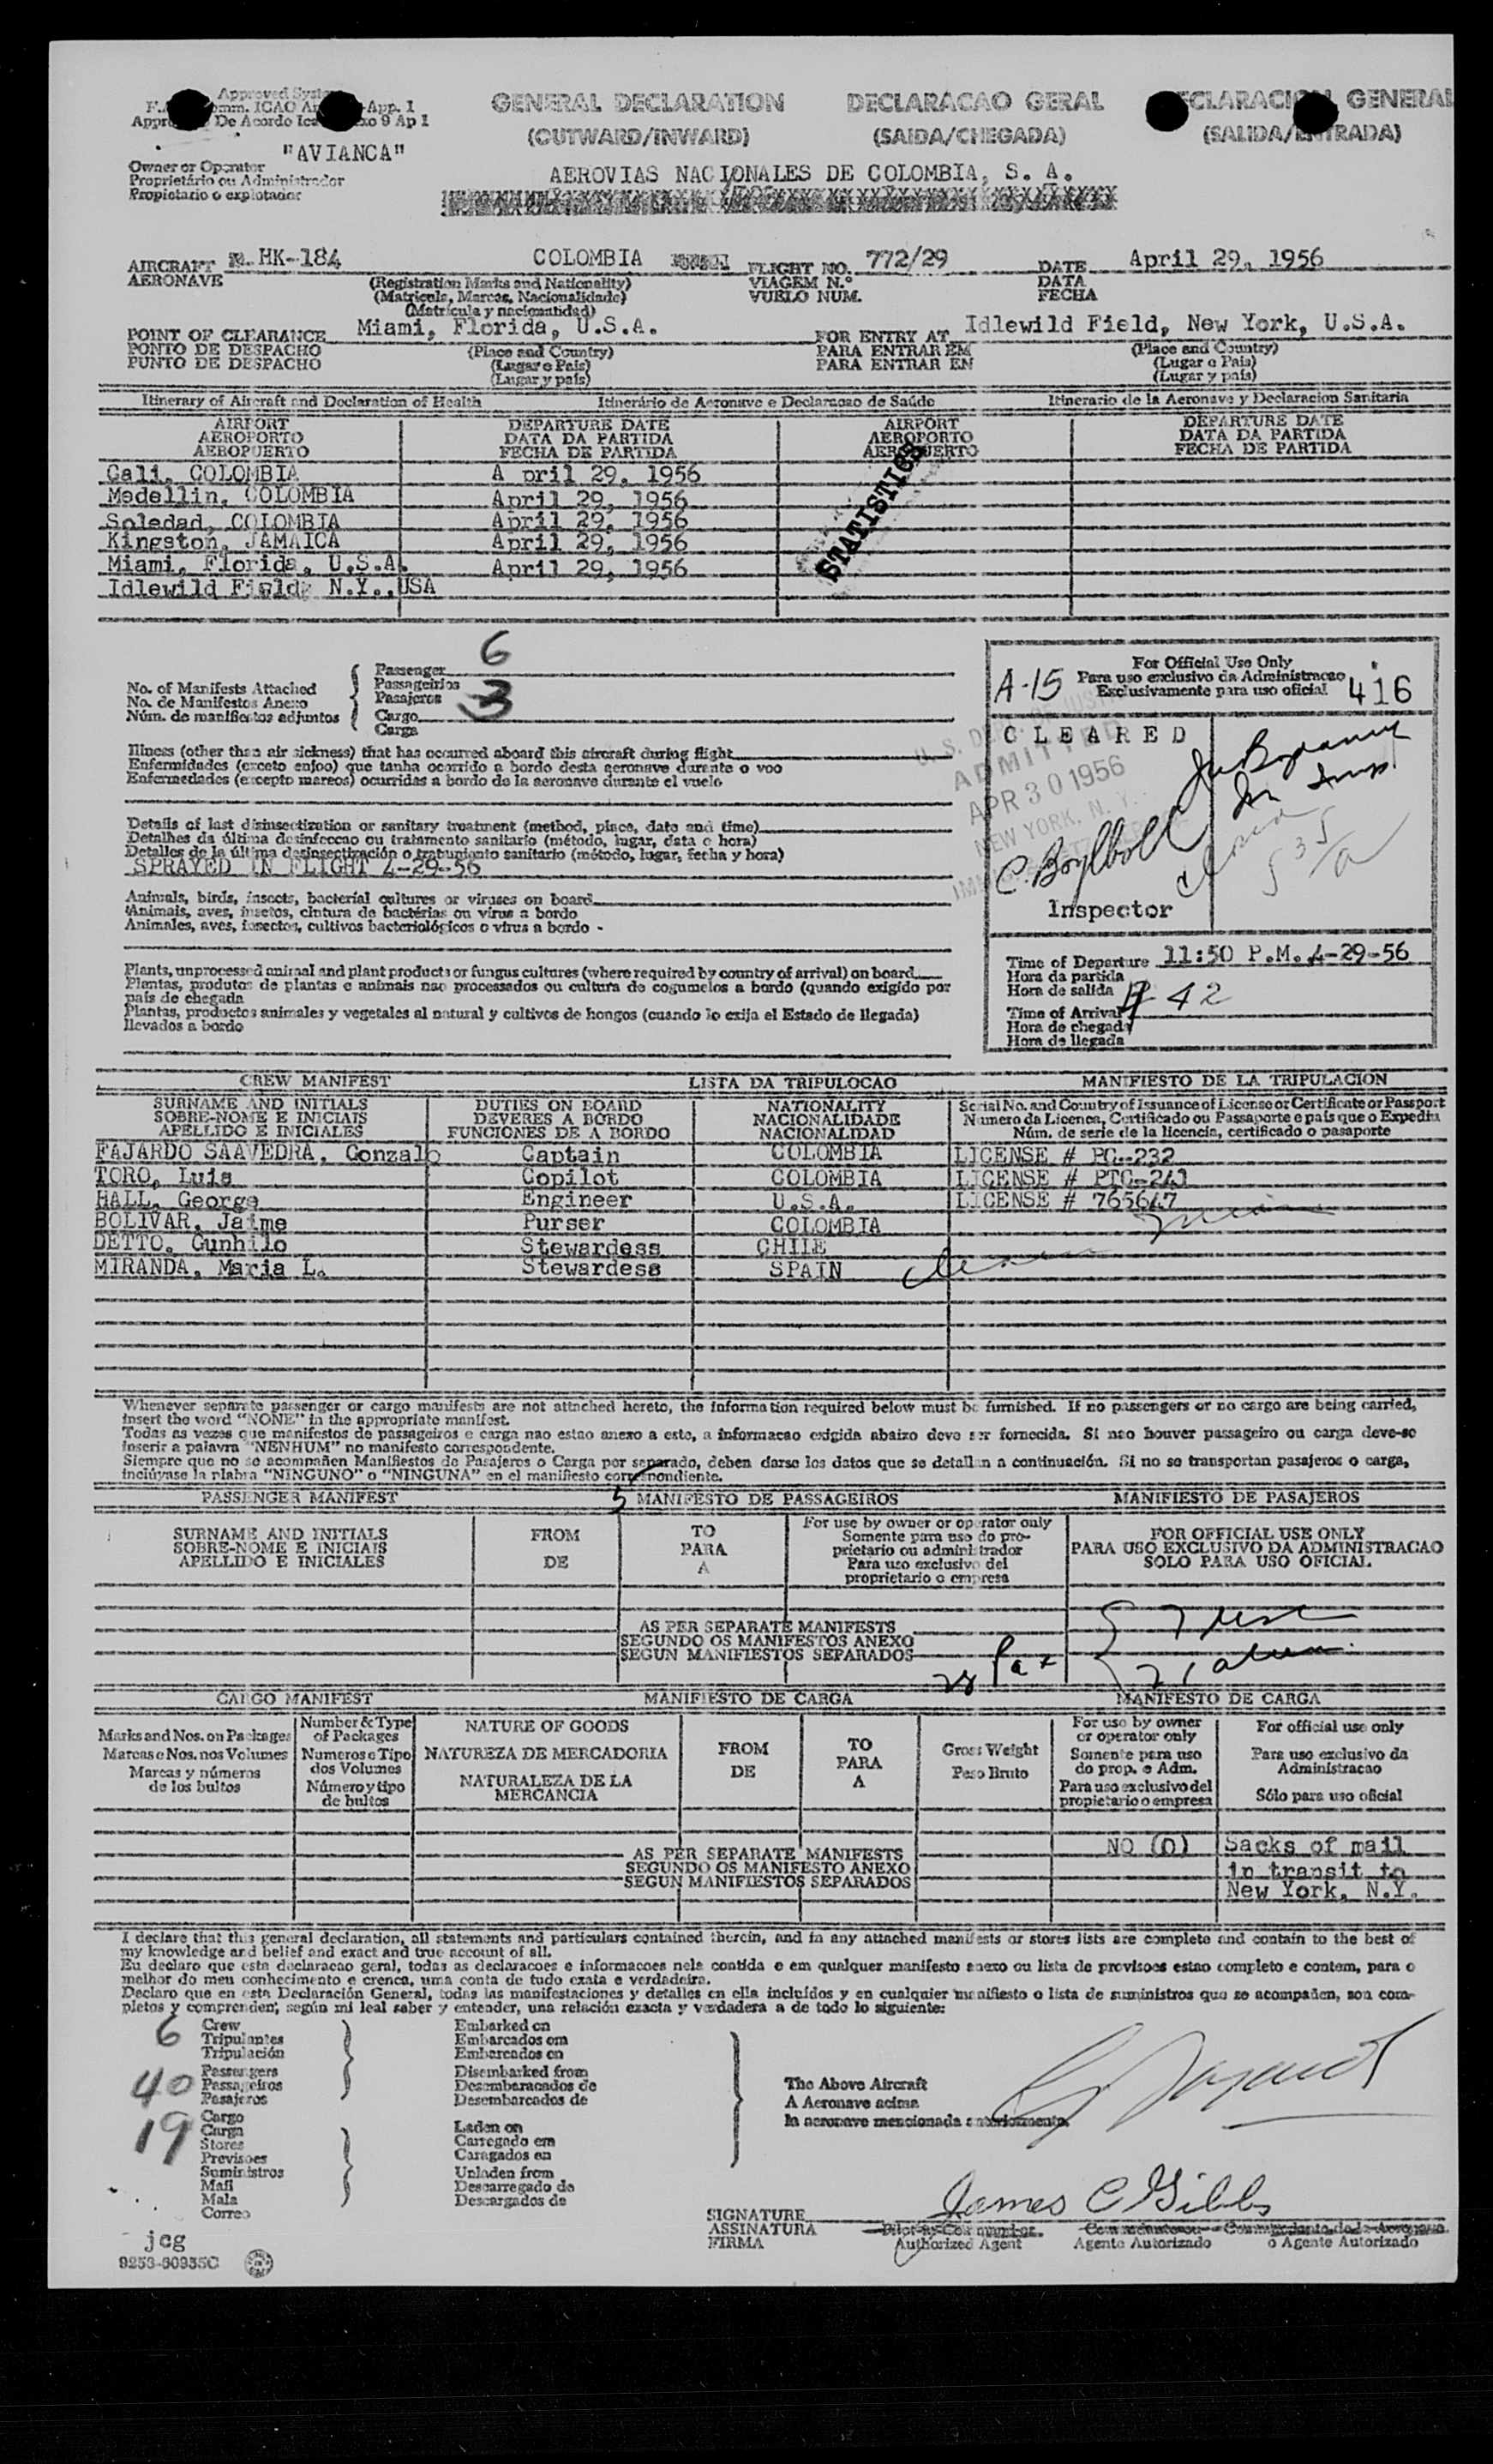 Approved
App. 1
De Acordo 9 Ap 1
GENERAL DECLARATION DECLARACAO GERAL GENERAL
(OUTWARD/INWARD) (SAIDA/CHEGADA) (SALIDA/ENTRADA)
"AVIANCA"
Owner or Operator
Proprietário ou Administrador
Propietario o explotador
AEROVIAS NACIONALES DE COLOMBIA, S. A.
AIRCRAFT HK-184 COLOMBIA FLIGHT NO. 772/29 DATE April 29, 1956
AERONAVE (Registration Marks and Nationality) VIAGEM N.º DATA
(Matricula, Marcas, Nacionalidade) VUELO NUM. FECHA
(Matricula y nacionalidad)
POINT OF CLEARANCE Miami, Florida, U.S.A. FOR ENTRY AT Idlewild Field, New York, U.S.A.
PONTO DE DESPACHO (Place and Country) PARA ENTRAR EM (Place and Country)
PUNTO DE DESPACHO (Lugar e Pais) PARA ENTRAR EN (Lugar e Pais)
(Lugar y pais) (Lugar y pais)
Itinerary of Aircraft and Declaration of Health Itinerário de Aeronave e Declaracao de Saúde Itinerario de la Aeronave y Declaracion Sanitaria
AIRPORT DEPARTURE DATE AIRPORT DEPARTURE DATE
AEROPORTO DATA DA PARTIDA AEROPORTO DATA DA PARTIDA
AEROPUERTO FECHA DE PARTIDA AEROPUERTO FECHA DE PARTIDA
Cali, COLOMBIA A pril 29, 1956
Medellin, COLOMBIA April 29, 1956
Soledad, COLOMBIA April 29, 1956
Kingston, JAMAICA April 29, 1956
Miami, Florida, U.S.A. April 29, 1956
Idlewild Field, N.Y.,USA
STATISTICS
No. of Manifests Attached
No. de Manifestos Anexo
Núm. de manifiestos adjuntos
Passenger 6
Passageirios
Pasajeros
Cargo 3
Carga
For Official Use Only
Para uso exclusivo da Administracao
Exclusivamente para uso oficial
A-15 416
CLEARED
U. S. DEPT. OF JUSTICE
ADMITTED
APR 30 1956
NEW YORK, N. Y.
Inspector
Illness (other than air sickness) that has occurred aboard this aircraft during flight
Enfermidades (exceto enjoo) que tanha ocorrido a bordo desta aeronave durante o voo
Enfermedades (excepto mareos) ocurridas a bordo de la aeronave durante el vuelo
Details of last disinsectization or sanitary treatment (method, place, date and time)
Detalhes da última desinfeccao ou tratamento sanitario (método, lugar, data e hora)
Detalles de la última desinsectización o tratamiento sanitario (método, lugar, fecha y hora)
SPRAYED IN FLIGHT 4-29-56
Animals, birds, insects, bacterial cultures or viruses on board
Animais, aves, insetos, cintura de bactérias ou virus a bordo
Animales, aves, insectos, cultivos bacteriológicos o virus a bordo -
Plants, unprocessed animal and plant products or fungus cultures (where required by country of arrival) on board
Plantas, produtos de plantas e animais nao processados ou cultura de cogumelos a bordo (quando exigido por
pais de chegada
Plantas, productos animales y vegetales al natural y cultivos de hongos (cuando lo exija el Estado de llegada)
llevados a bordo
Time of Departure 11:50 P.M. 4-29-56
Hora da partida
Hora de salida
Time of Arrival 42
Hora de chegada
Hora de llegada
CREW MANIFEST LISTA DA TRIPULOCAO MANIFIESTO DE LA TRIPULACION
SURNAME AND INITIALS DUTIES ON BOARD NATIONALITY Serial No. and Country of Issuance of License or Certificate or Passport
SOBRE-NOME E INICIAIS DEVERES A BORDO NACIONALIDADE Numero da Licenca, Certificado ou Passaporte e pais que o Expediu
APELLIDO E INICIALES FUNCIONES DE A BORDO NACIONALIDAD Núm. de serie de la licencia, certificado o pasaporte
FAJARDO SAAVEDRA, Gonzalo Captain COLOMBIA LICENSE # PC-232
TORO, Luis Copilot COLOMBIA LICENSE # PTC-241
HALL, George Engineer U.S.A. LICENSE # 765647
BOLIVAR, Jaime Purser COLOMBIA
DETTO, Gunhilo Stewardess CHILE
MIRANDA, Maria L. Stewardess SPAIN
Whenever separate passenger or cargo manifests are not attached hereto, the information required below must be furnished. If no passengers or no cargo are being carried,
insert the word "NONE" in the appropriate manifest.
Todas as vezes que manifestos de passageiros e carga nao estao anexo a este, a informacao exigida abaixo deve ser fornecida. Si nao houver passageiro ou carga deve-se
inserir a palavra "NENHUM" no manifesto correspondente.
Siempre que no se acompañen Manifiestos de Pasajeros o Carga por separado, deben darse los datos que se detallan a continuación. Si no se transportan pasajeros o carga,
inclúyase la plabra "NINGUNO" o "NINGUNA" en el manifiesto correspondiente.
PASSENGER MANIFEST 5 MANIFESTO DE PASSAGEIROS MANIFIESTO DE PASAJEROS
SURNAME AND INITIALS FROM TO For use by owner or operator only FOR OFFICIAL USE ONLY
SOBRE-NOME E INICIAIS PARA Somente para uso do pro- PARA USO EXCLUSIVO DA ADMINISTRACAO
APELLIDO E INICIALES DE A prietario ou administrador SOLO PARA USO OFICIAL
Para uso exclusivo del
proprietario o empresa
AS PER SEPARATE MANIFESTS
SEGUNDO OS MANIFESTOS ANEXO
SEGUN MANIFIESTOS SEPARADOS
28 Pax
CARGO MANIFEST MANIFIESTO DE CARGA MANIFESTO DE CARGA
Marks and Nos. on Packages Number & Type of Packages NATURE OF GOODS FROM TO Gross Weight For use by owner or operator only For official use only
Marcas e Nos. nos Volumes Numeros e Tipo dos Volumes NATUREZA DE MERCADORIA DE PARA Peso Bruto Somente para uso do prop. e Adm. Para uso exclusivo da Administracao
Marcas y números de los bultos Número y tipo de bultos NATURALEZA DE LA MERCANCIA A Para uso exclusivo del propietario o empresa Sólo para uso oficial
AS PER SEPARATE MANIFESTS NO (0) Sacks of mail
SEGUNDO OS MANIFESTO ANEXO in transit to
SEGUN MANIFIESTOS SEPARADOS New York, N.Y.
I declare that this general declaration, all statements and particulars contained therein, and in any attached manifests or stores lists are complete and contain to the best of
my knowledge and belief and exact and true account of all.
Eu declaro que esta declaracao geral, todas as declaracoes e informacoes nela contida e em qualquer manifesto anexo ou lista de provisoes estao completo e contem, para o
melhor do meu conhecimento e crenca, uma conta de tudo exata e verdadeira.
Declaro que en esta Declaración General, todas las manifestaciones y detalles en ella incluídos y en cualquier manifiesto o lista de suministros que se acompañen, son com-
pletos y comprenden, según mi leal saber y entender, una relación exacta y verdadera a de todo lo siguiente:
6 Crew
Tripulantes
Tripulación
40 Passengers
Passageiros
Pasajeros
19 Cargo
Carga
Stores
Previsoes
Suministros
Mail
Mala
Correo
Embarked on
Embarcados em
Embarcados en
Disembarked from
Desembaracados de
Desembarcados de
Laden on
Carregado em
Caragados en
Unladen from
Descarregado de
Descargados de
The Above Aircraft
A Aeronave acima
la aeronave mencionada anteriormente
SIGNATURE James C Gibbs
ASSINATURA
FIRMA
Authorized Agent Agente Autorizado o Agente Autorizado
jcg
9253-60935C